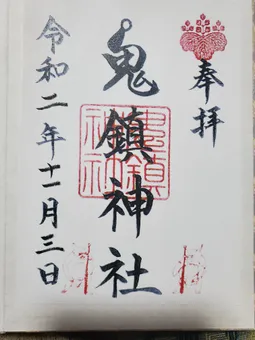 奉拝
鬼鎮神社
令和二年十一月三日
鬼鎮
神社